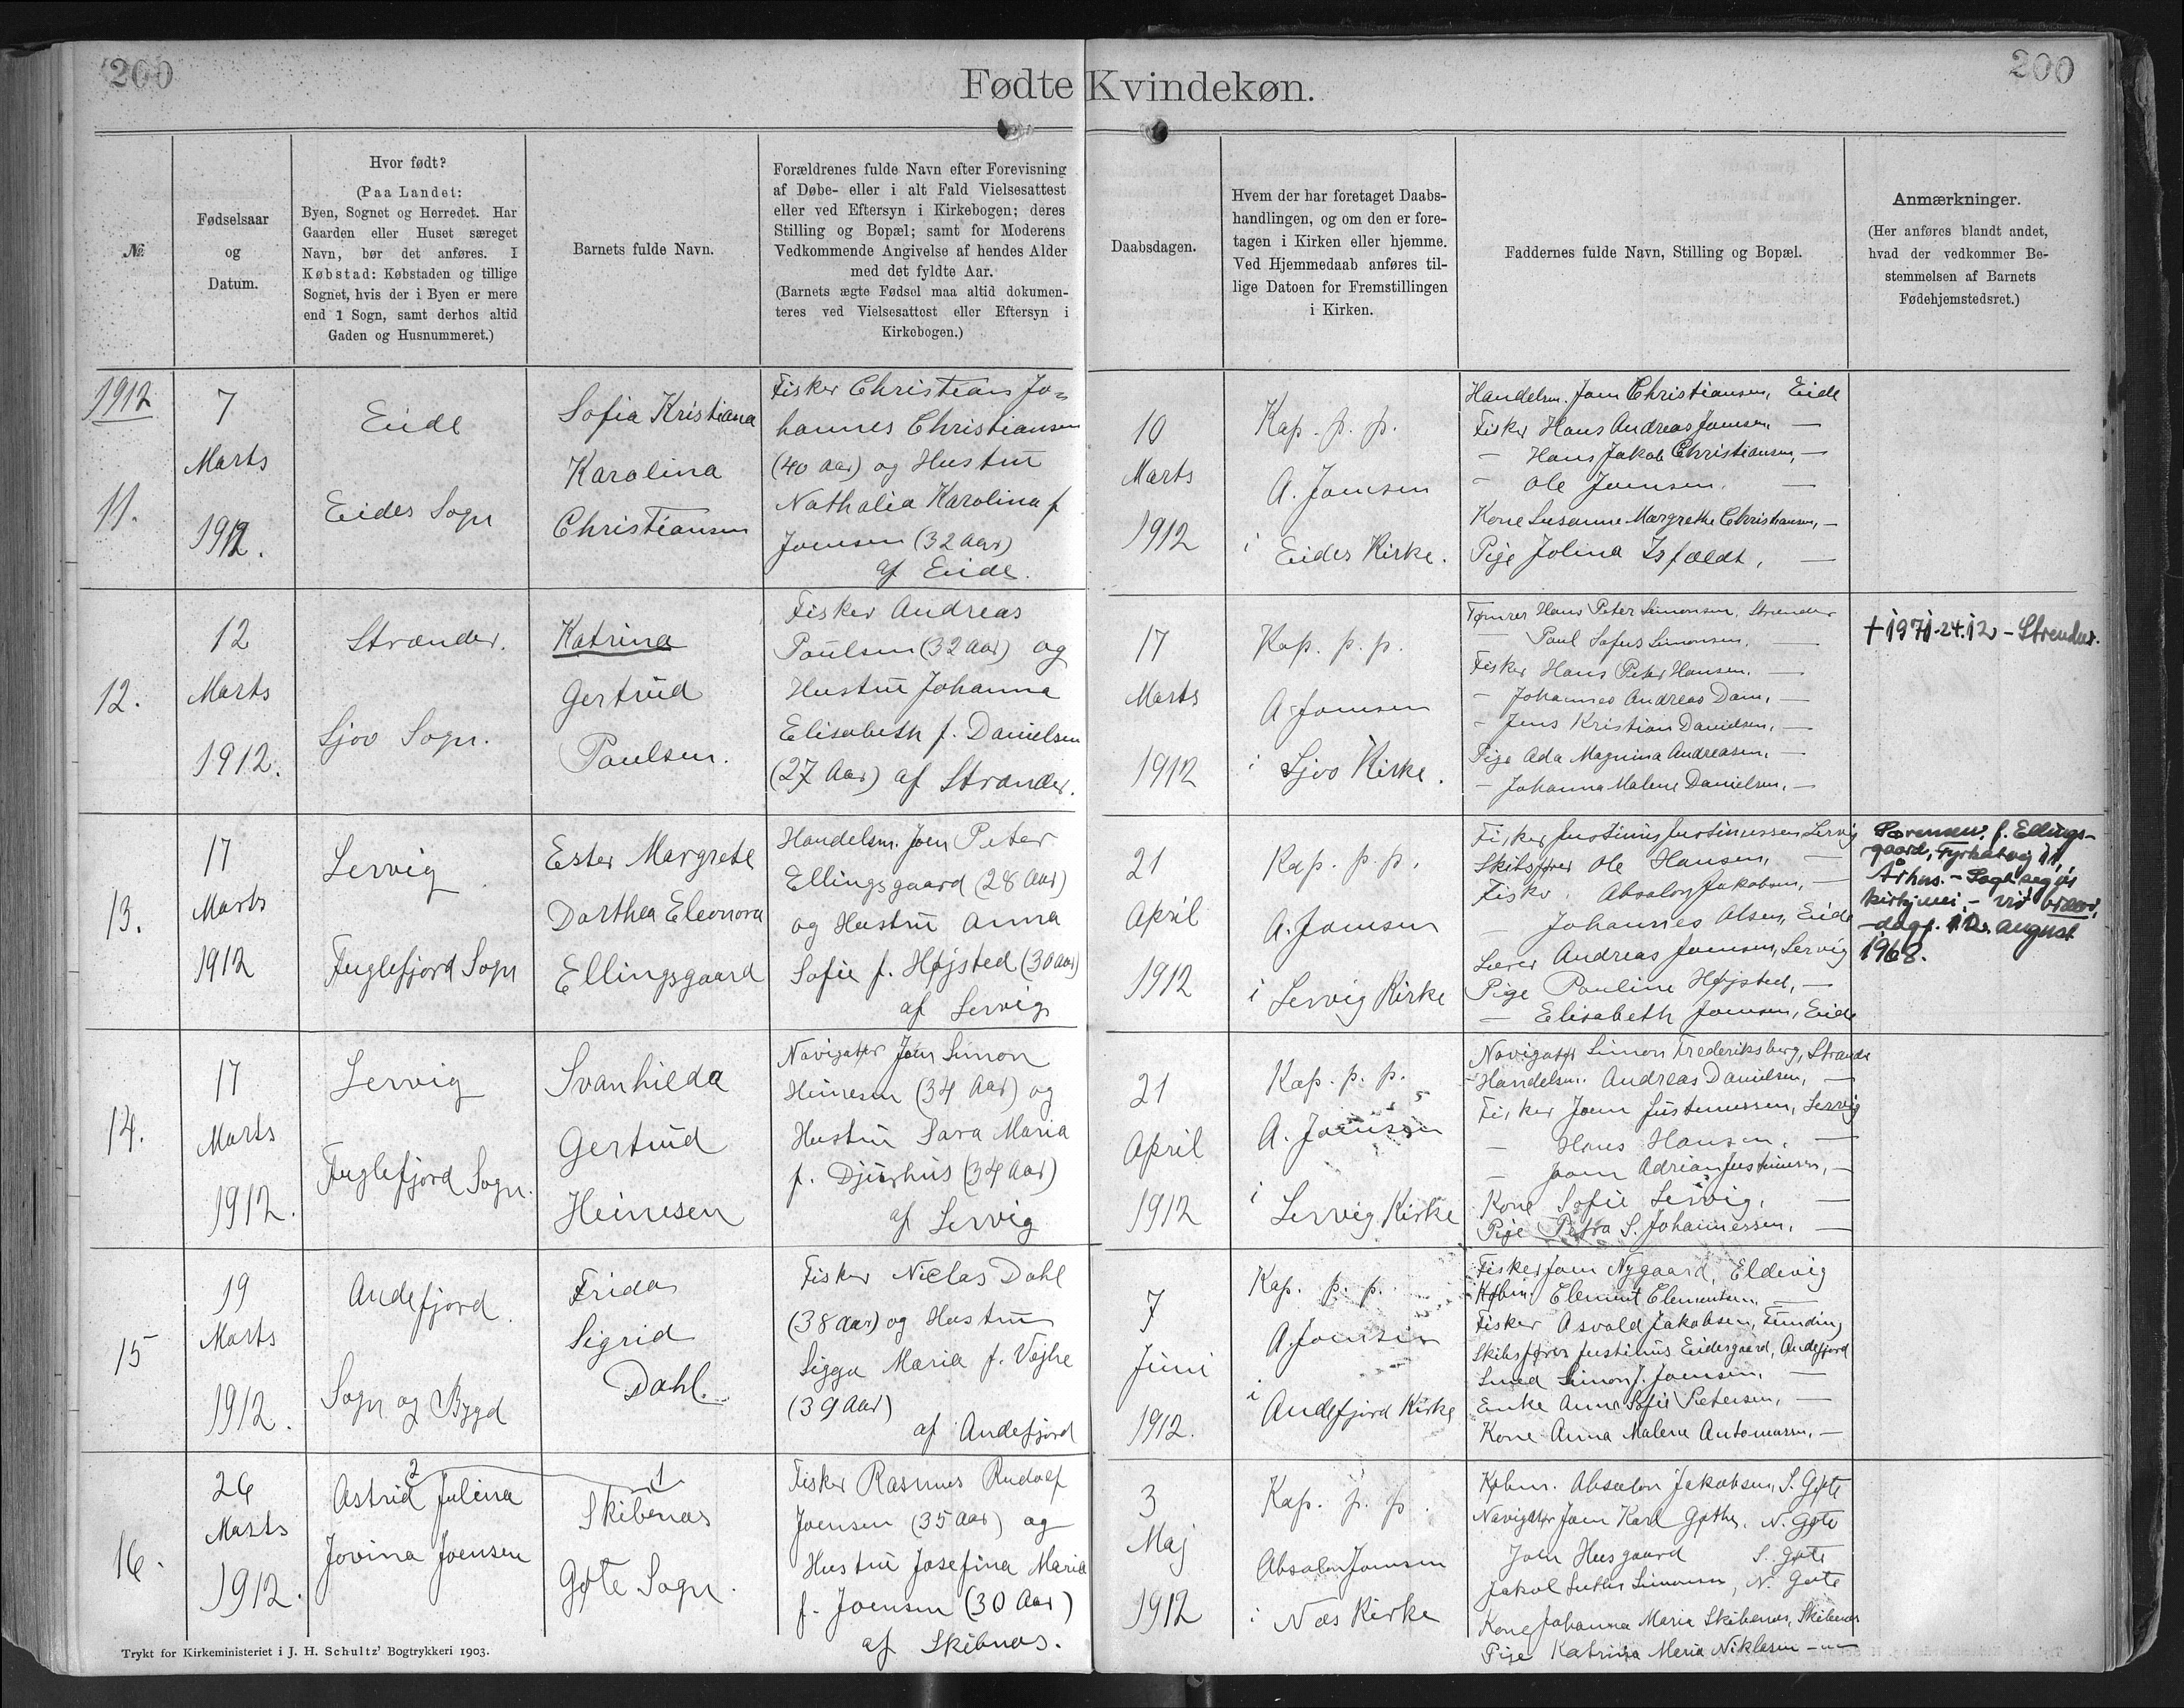 200
200
Fødte Kvindekøn.
№
Fødselsaar
og
Datum.
Hvor født?
(Paa Landet:
Byen, Sognet og Herredet. Har
Gaarden eller Huset særeget
Navn, bør det anføres. I
Købstad: Købstaden og tillige
Sognet, hvis der i Byen er mere
end 1 Sogn, samt derhos altid
Gaden og Husnummeret.)
Barnets fulde Navn.
Forældrenes fulde Navn efter Forevisning
af Døbe- eller i alt Fald Vielsesattest
eller ved Eftersyn i Kirkebogen; deres
Stilling og Bopæl; samt for Moderens
Vedkommende Angivelse af hendes Alder
med det fyldte Aar.
(Barnets ægte Fødsel maa altid dokumen-
teres ved Vielsesattest eller Eftersyn i
Kirkebogen.)
Daabsdagen.
Hvem der har foretaget Daabs-
handlingen, og om den er fore-
tagen i Kirken eller hjemme.
Ved Hjemmedaab anføres til-
lige Datoen for Fremstillingen
i Kirken.
Faddernes fulde Navn, Stilling og Bopæl.
Anmærkninger.
(Her anføres blandt andet,
hvad der vedkommer Be-
stemmelsen af Barnets
Fødehjemstedsret.)
1912
11.
7
Marts
1912.
Eide
Eides Sogn
Sofia Kristiana
Karolina
Christiansen
Fisker Christian Jo=
hannes Christiansen
(40 Aar) og Hustru
Nathalia Karolina f
Joensen (32 Aar)
af Eide.
10
Marts
1912
Kap. p. p.
A. Joensen
i Eides Kirke.
Handelsm. Joen Christiansen, Eide
Fisker Hans Andreas Joensen, —
- Hans Jakob Christiansen, —
- Ole Joensen, —
Kone Susanne Margrethe Christiansen, —
Pige Jolina Isfældt, —
12.
12
Marts
1912.
Strænder.
Sjov Sogn.
Katrina
Gertrud
Poulsen.
Fisker Andreas
Poulsen (32 Aar) og
Hustru Johanna
Elisabeth f. Danielsen
(27 Aar) af Strænder.
17
Marts
1912
Kap. p. p.
A. Joensen
i Sjov Kirke.
Tømrer Hans Peter Simonsen, Strænder
— Poul Sofus Simonsen, —
Fisker Hans Peter Hansen, —
- Johannes Andreas Dam, —
- Jens Kristian Danielsen, —
Pige Ada Magnina Andreasen, —
- Johanna Malene Danielsen, —
+ 1971-24.12 - Strendur.
13.
17
Marts
1912
Lervig
Fuglefjord Sogn
Ester Margrete
Dorthea Eleonora
Ellingsgaard
Handelsm. Joen Peter
Ellingsgaard (28 Aar)
og Hustru Anna
Sofie f. Højsted (30 Aar)
af Lervig
21
April
1912
Kap. p. p.
A. Joensen
i Lervig Kirke
Fisker Justinus Justinussen, Lervig
Skibsfører Ole Hansen, —
Fisker Absalon Jakobsen, —
— Johannes Olsen, Eide
Lærer Andreas Joensen, Lervig
Pige Pauline Højsted, —
— Elisabeth Joensen, Eide
Sørensen, f. Ellings-
gaard, Fyrkatvej 11,
Århus. - Sagt seg úr
kirkjuni, - við
-dagf. 12. august
1968.
14.
17
Marts
1912.
Lervig
Fuglefjord Sogn.
Svanhilda
Gertrud
Heinesen
Navigatør Joen Simon
Heinesen (34 Aar) og
Hustru Sara Maria
f. Djurhus (34 Aar)
af Lervig
21
April
1912
Kap. p. p.
A. Joensen
i Lervig Kirke
Navigatør Simon Frederiksberg, Strænder
- Handelsm. Andreas Danielsen, —
Fisker Joen Justinussen, Lervig
— Hans Hansen, —
— Joen Adrian Justinussen, —
Kone Sofie Lervig, —
Pige Petra S. Johannessen, —
15
19
Marts
1912.
Andefjord.
Sogn og Bygd
Frida
Sigrid
Dahl.
Fisker Niclas Dahl
(38 Aar) og Hustru
Sigga Maria f. Vejhe
(39 Aar)
af Andefjord
7
Juni
1912.
Kap. p. p.
A. Joensen
i Andefjord Kirke
Fisker Joen Nygaard, Eldevig
Købm. Element Elementsen, —
Fisker Asvald Jakobsen, Funding
Skibsfører Justinus Eidesgaard, Andefjord
Smed Simon J. Joensen, —
Enke Anna Sofie Petersen, —
Kone Anna Malene Antoniussen, —
16.
26
Marts
1912.
2
Astrid Julina
Jovina Joensen
1
Skibenæs
Gøte Sogn.
Fisker Rasmus Rudolf
Joensen (35 Aar) og
Hustru Josefina Maria
f. Joensen (30 Aar)
af Skibnæs.
3
Maj
1912
Kap. p. p.
Absalon Joensen
i Næs Kirke
Købm. Absalon Jakobsen, S. Gøte
Navigatør Joen Karl Gøthe, N. Gøte
Joen Husgaard S. Gøte
Jakob Luther Simonsen, N. Gøte
Kone Johanna Maria Skibenæs, Skibenæs
Pige Katrina Maria Niklasen —"—
Trykt for Kirkeministeriet i J. H. Schultz' Bogtrykkeri 1903.